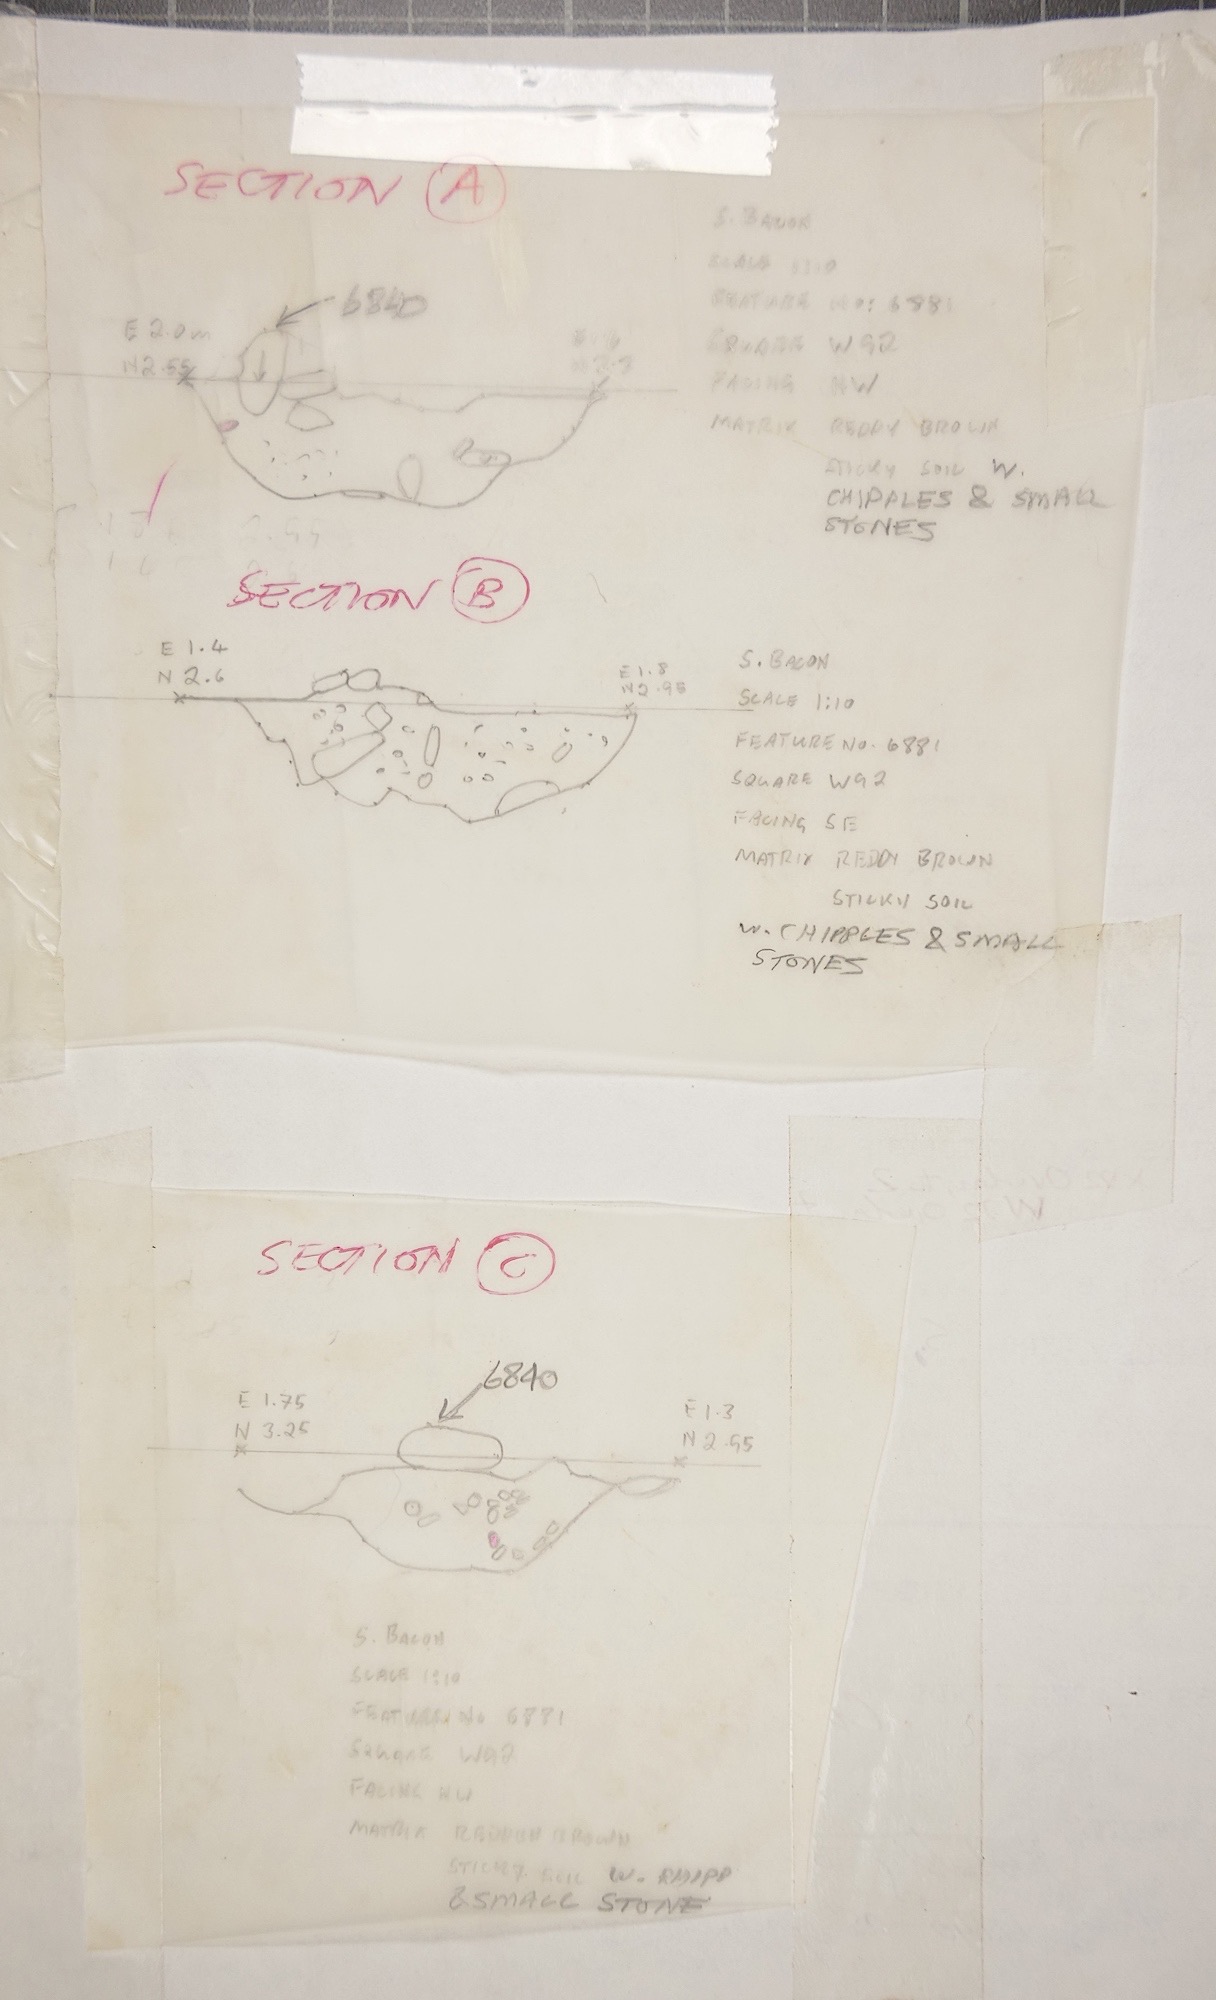 SECTION A
6840
E 2.0m
N 2.55
S. BACON
SCALE 1:10
FEATURE NO: 6881
SQUARE W92
FACING NW
MATRIX REDDY BROWN
STICKY SOIL W.
CHIPPLES & SMALL
STONES
SECTION B
E 1.4
N 2.6
E 1.8
N 2.95
S. BACON
SCALE 1:10
FEATURE No. 6881
SQUARE W92
FACING SE
MATRIX REDDY BROWN
STICKY SOIL
W. CHIPPLES & SMALL
STONES
SECTION C
6840
E 1.75
N 3.25
E 1.3
N 2.95
S. BACON
SCALE 1:10
FEATURE No 6881
SQUARE W92
FACING NW
MATRIX BROWN
STICKY SOIL W.
& SMALL STONE